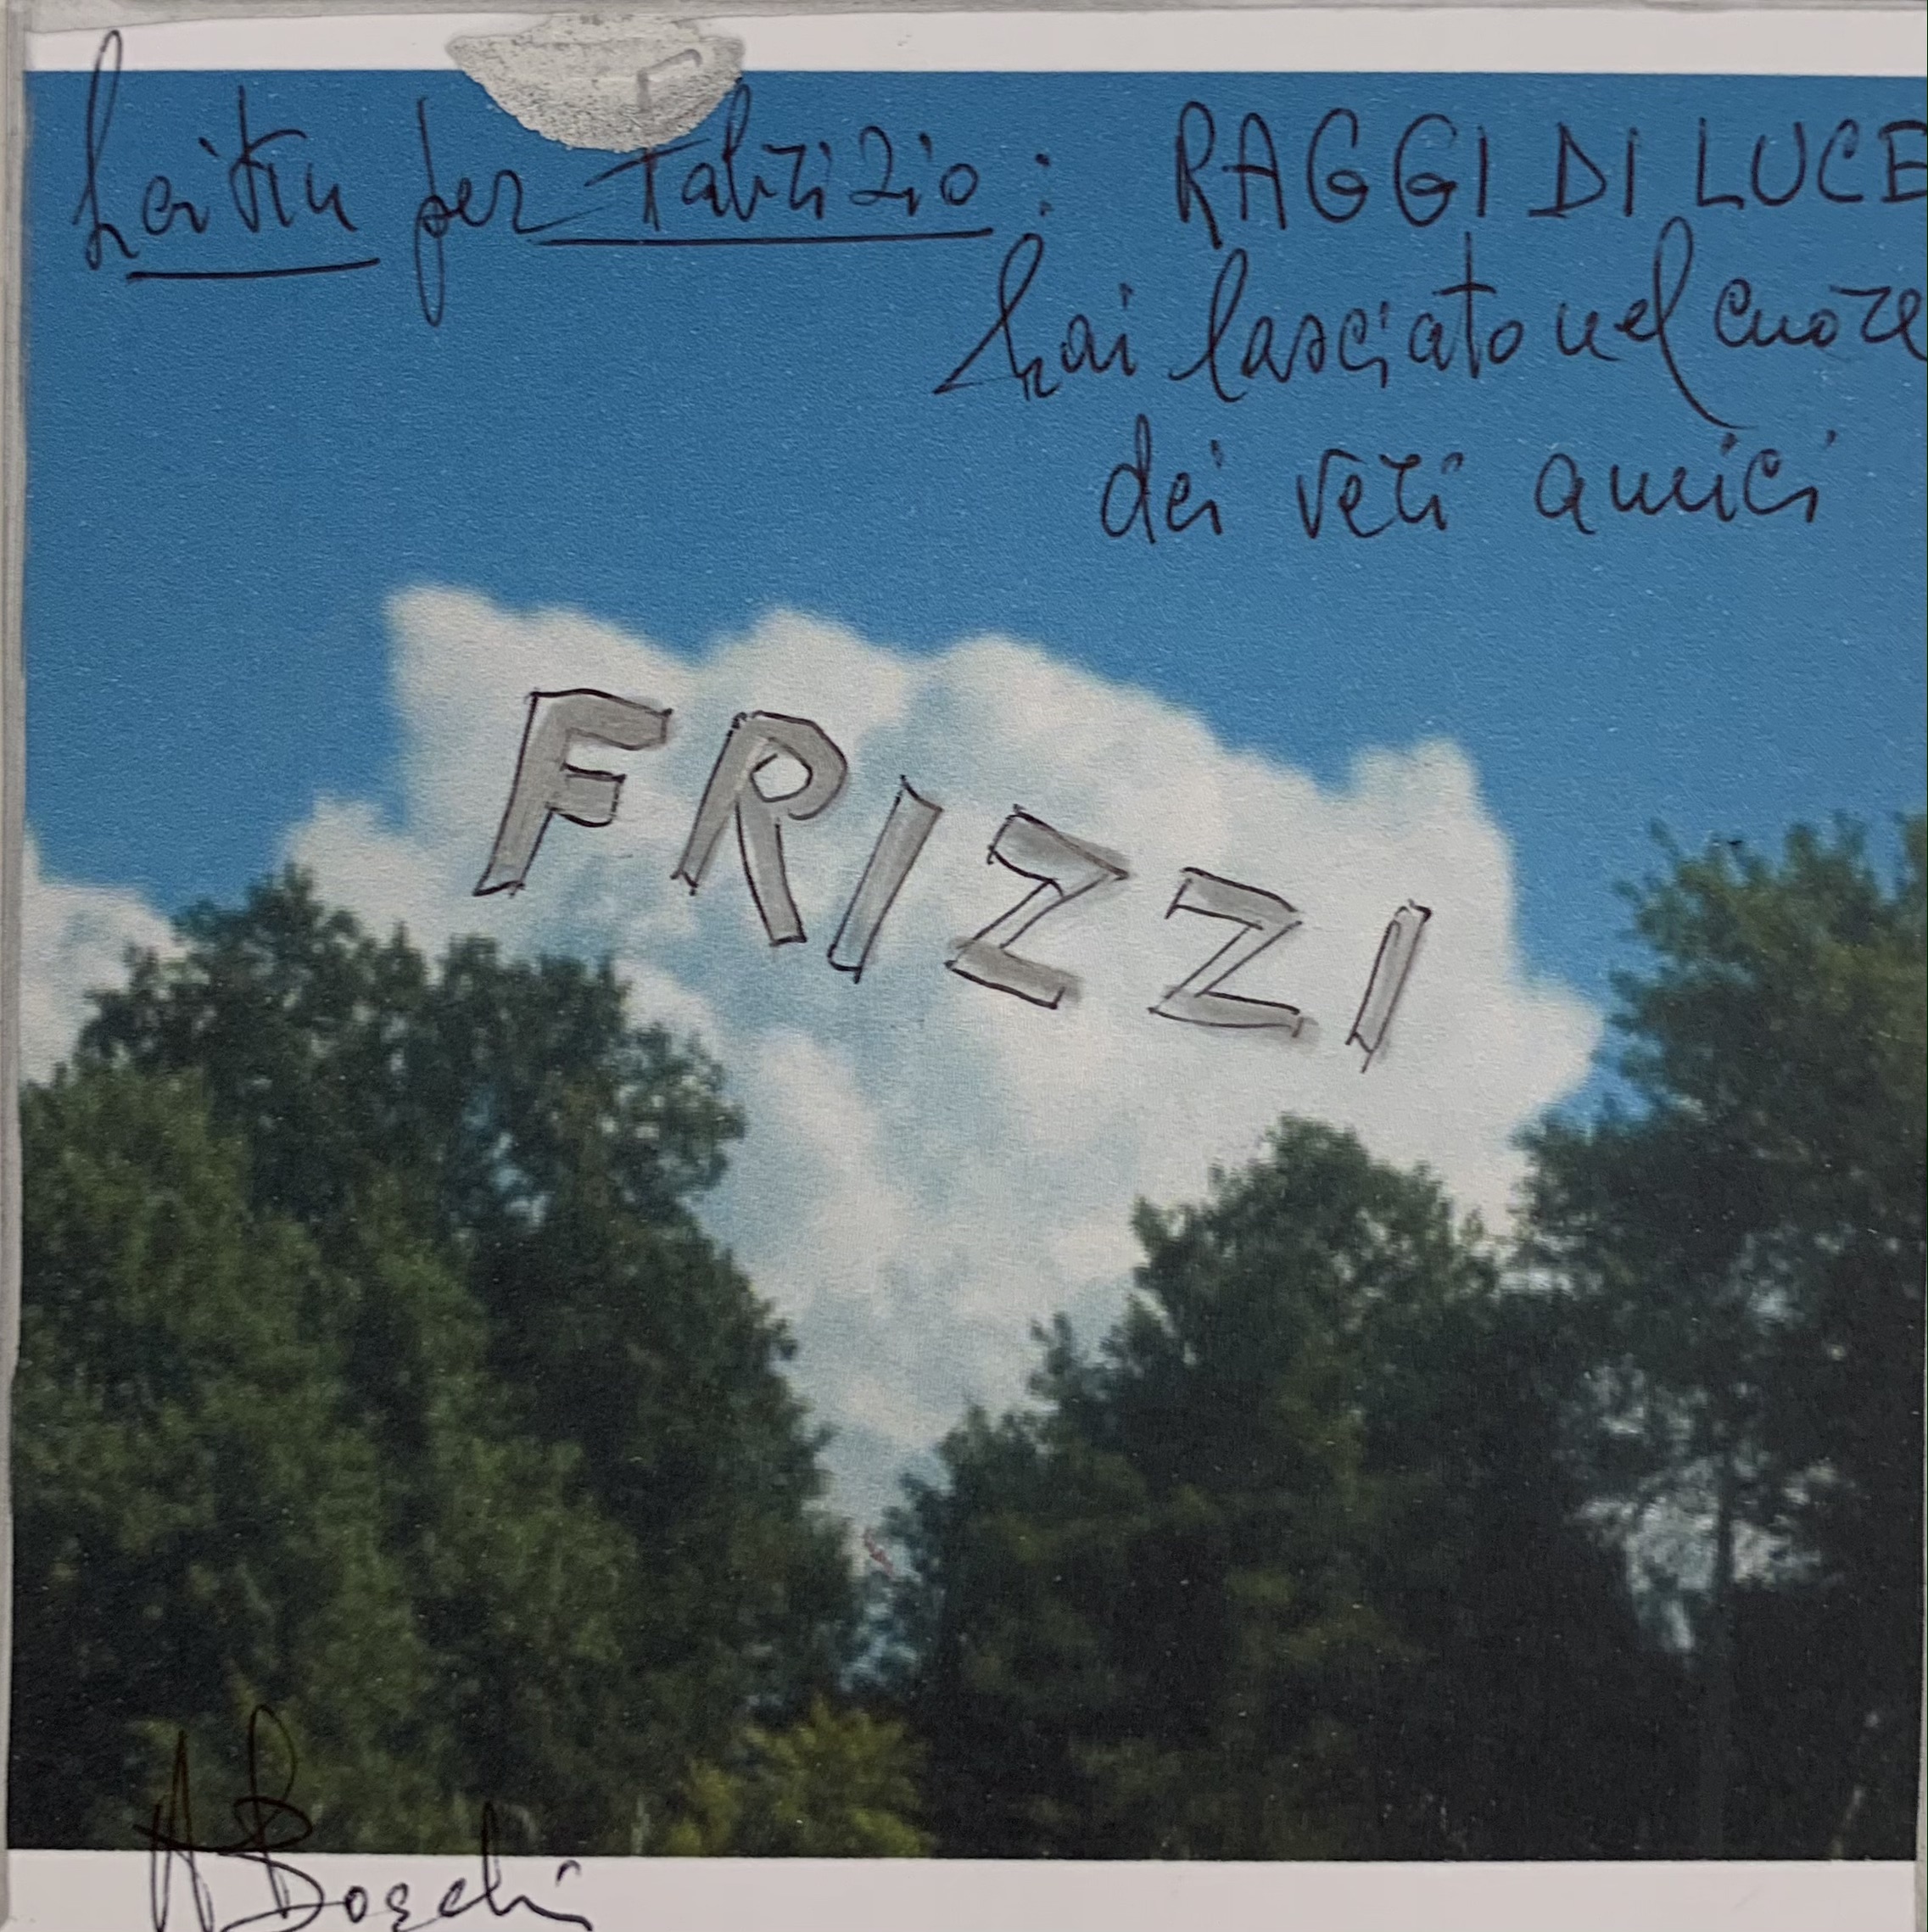 haiku per Fabrizio: RAGGI DI LUCE
hai lasciato nel cuore
dei veri amici
FRIZZI
A Boschi